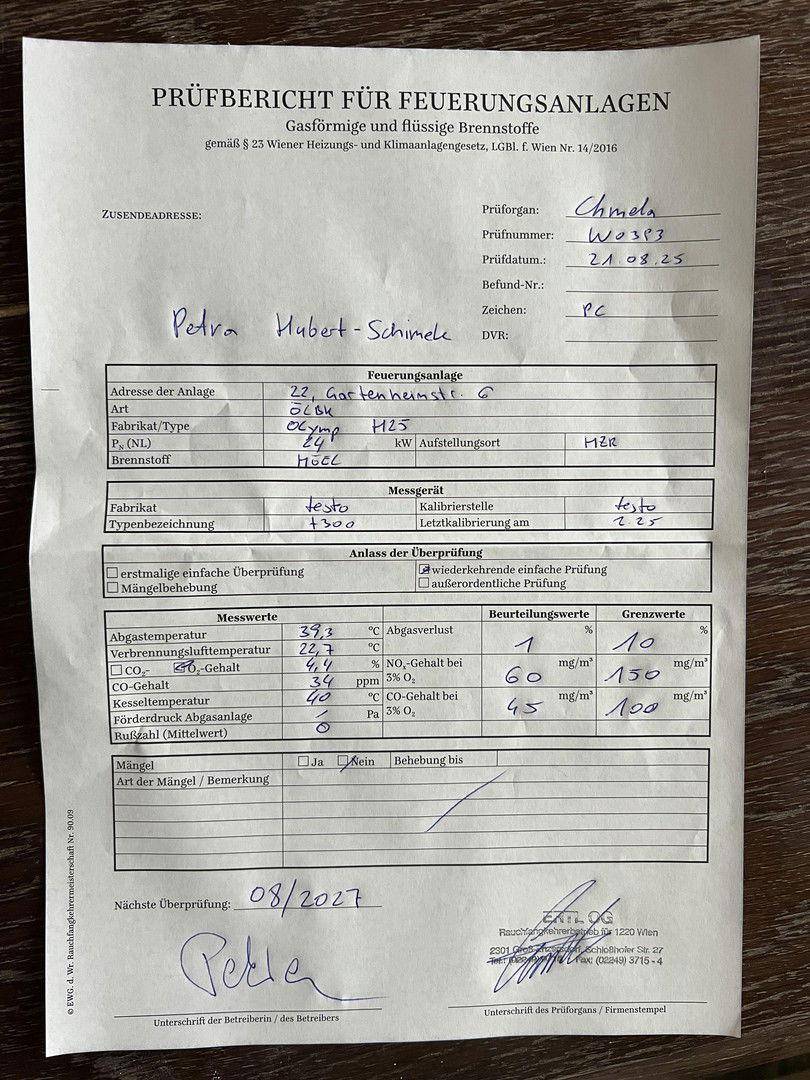 PRÜFBERICHT FÜR FEUERUNGSANLAGEN
Gasförmige und flüssige Brennstoffe
gemäß § 23 Wiener Heizungs- und Klimaanlagengesetz, LGBl. f. Wien Nr. 14/2016
ZUSENDEADRESSE:
Prüforgan: Chmela
Prüfnummer: W0393
Prüfdatum.: 21.08.25
Befund-Nr.:
Zeichen: PC
DVR:
Petra Hubert-Schimek
Feuerungsanlage
Adresse der Anlage 22, Gartenheimstr. 6
Art ÖLBK
Fabrikat/Type Olymp H25
PN (NL) 24 kW Aufstellungsort HZR
Brennstoff HöEL
Messgerät
Fabrikat testo Kalibrierstelle testo
Typenbezeichnung t300 Letztkalibrierung am 2.25
Anlass der Überprüfung
erstmalige einfache Überprüfung wiederkehrende einfache Prüfung
Mängelbehebung außerordentliche Prüfung
Messwerte Beurteilungswerte Grenzwerte
Abgastemperatur 39,3 °C Abgasverlust 1 % 10 %
Verbrennungslufttemperatur 22,7 °C
CO₂- O₂-Gehalt 4,4 % NOₓ-Gehalt bei 3% O₂ 60 mg/m³ 150 mg/m³
CO-Gehalt 34 ppm
Kesseltemperatur 40 °C CO-Gehalt bei 3% O₂ 45 mg/m³ 100 mg/m³
Förderdruck Abgasanlage / Pa
Rußzahl (Mittelwert) 0
Mängel Ja Nein Behebung bis
Art der Mängel / Bemerkung
Nächste Überprüfung: 08/2027
ERTL OG
Rauchfangkehrerbetrieb für 1220 Wien
2301 Groß-Enzersdorf, Schloßhofer Str. 27
Tel.: Fax: (02249) 3715 - 4
Unterschrift der Betreiberin / des Betreibers
Unterschrift des Prüforgans / Firmenstempel
© EWG. d. Wr. Rauchfangkehrermeisterschaft Nr. 90.09